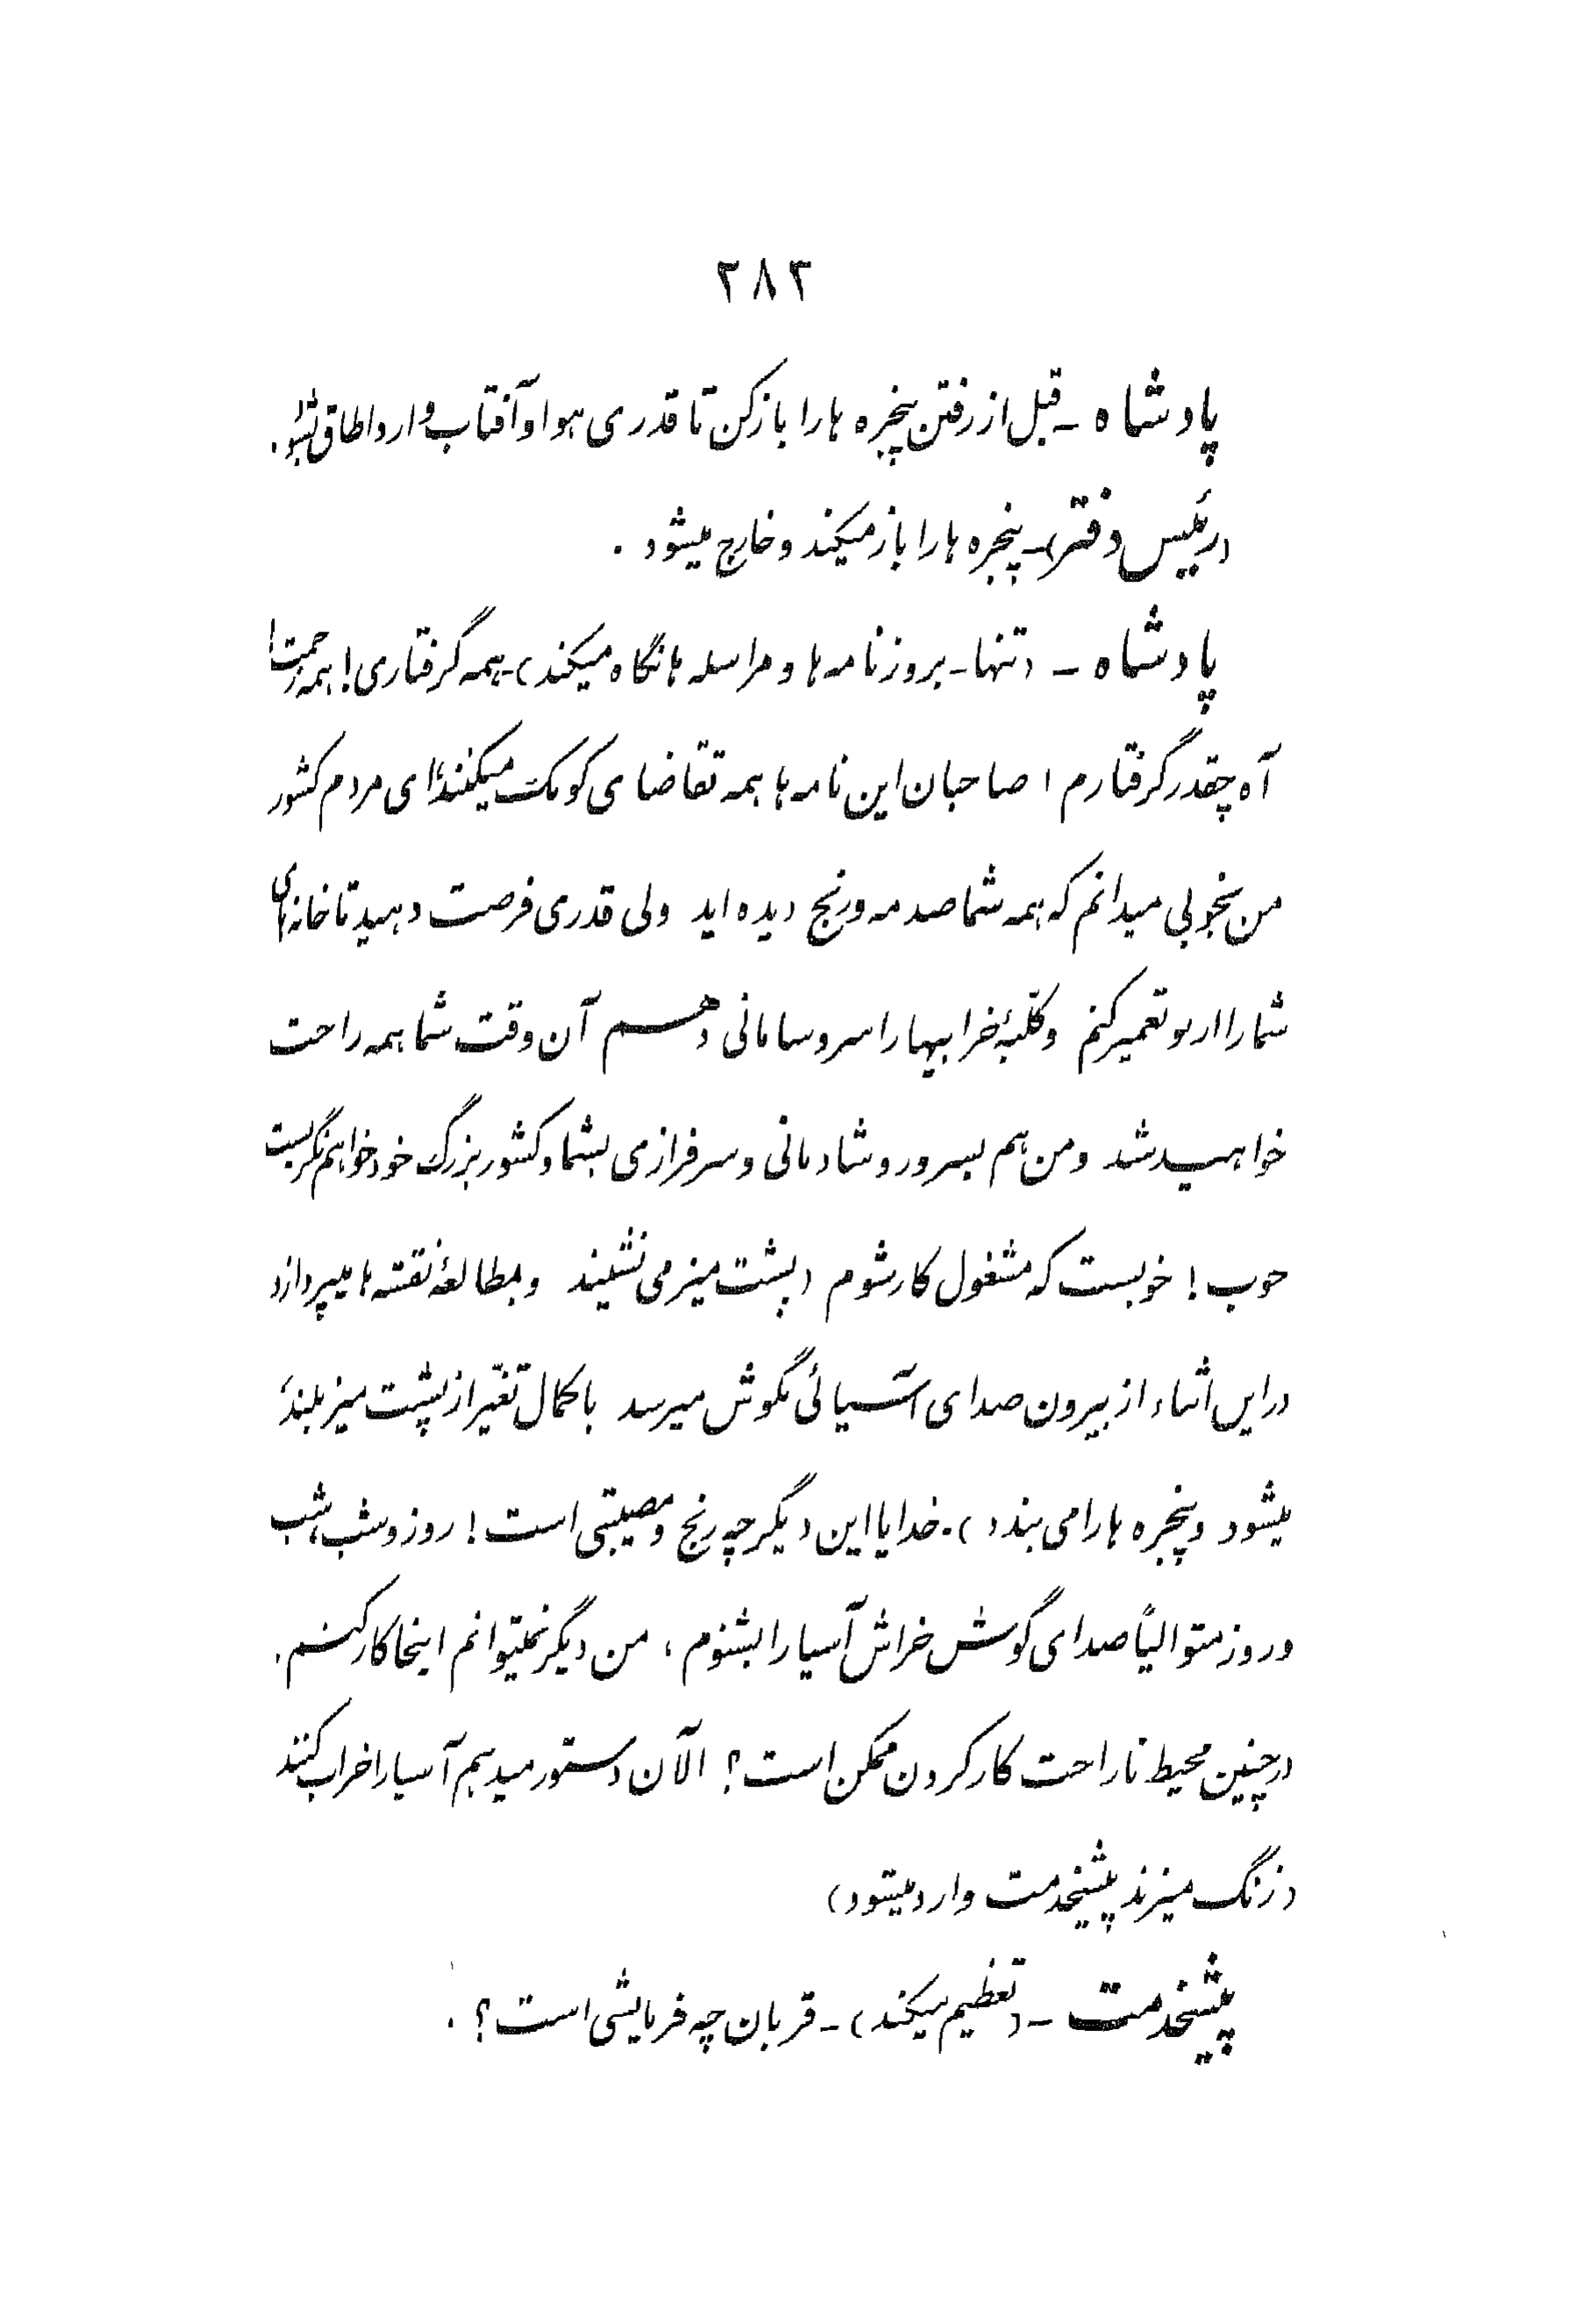 ۲۸۳
پادشاه - قبل از رفتن پنجره ها را باز کن تا قدری هوا و آفتاب وارد اطاق بشود.
(رئیس دفتر) - پنجره ها را باز میکند و خارج میشود .
پادشاه - (تنها - بروزنامه ها و مراسله ها نگاه میکند) - همه گرفتاری! همه زحمت!
آه چقدر گرفتارم ! صاحبان این نامه ها همه تقاضای کومک میکنند، ای مردم کشور
من بخوبی میدانم که همه شما صدمه و رنج دیده اید ولی قدری فرصت دهید تا خانه های
شما را از نو تعمیر کنم و کلّیهٔ خرابیها را سر و سامانی دهم آن وقت شما همه راحت
خواهید شد و من هم بسرور و شادمانی و سرفرازی بشما و کشور بزرگ خود خواهم نگریست
خوب ! خوبست که مشغول کار شوم (پشت میز می نشیند و بمطالعهٔ نقشه ها میپردازد
در این اثناء از بیرون صدای آسیائی بگوش میرسد با کمال تغیّر از پشت میز بلند
میشود و پنجره ها را می بندد) . خدایا این دیگر چه رنج و مصیبتی است ! روز و شب ، شب
و روز متوالیاً صدای گوش خراش آسیا را بشنوم ، من دیگر نمیتوانم اینجا کار کنم .
در چنین محیط ناراحت کار کردن ممکن است ؟ الآن دستور میدهم آسیا را خراب کنند
(زنگ میزند پیشخدمت وارد میشود)
پیشخدمت - (تعظیم میکند) - قربان چه فرمایشی است ؟ .